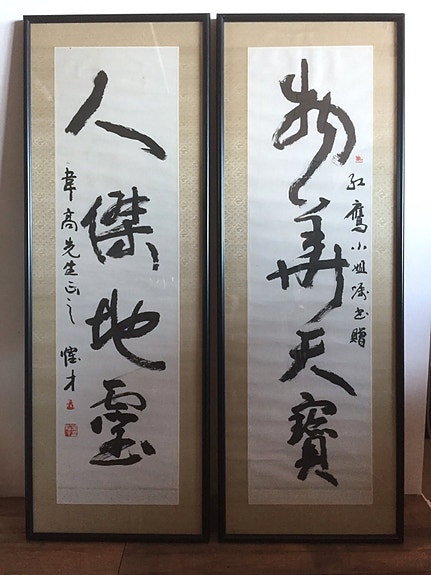 物華天寶
紅鷹小姐嘱书贈
人傑地靈
韋高先生正之
才